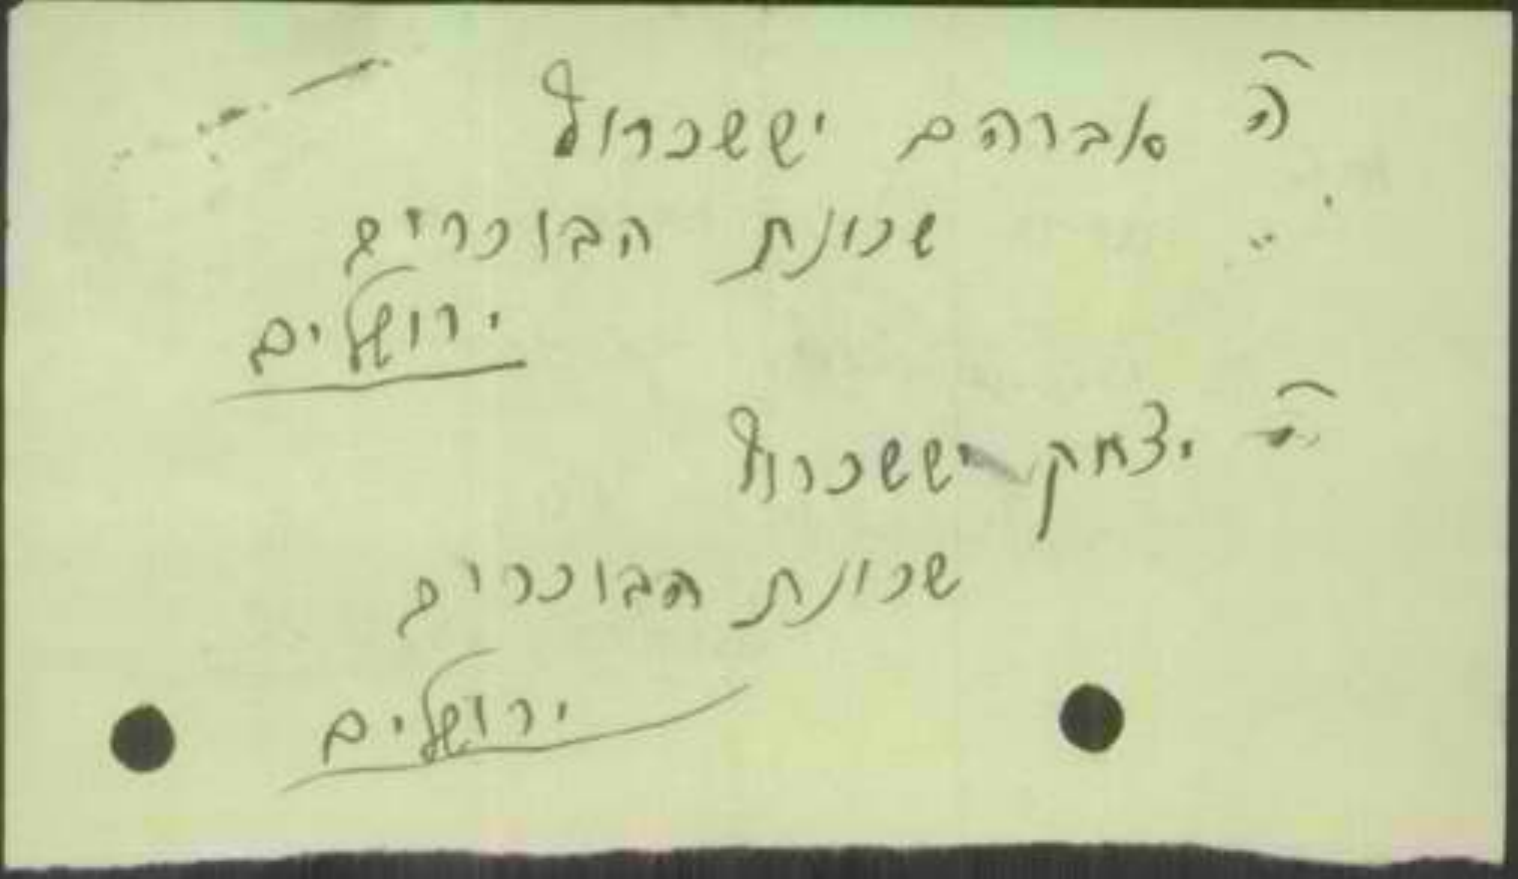 ה אברהם יששכרוף
שכונת הבוכרים
ירושלים
ה יצחק יששכרוף
שכונת הבוכרים
ירושלים